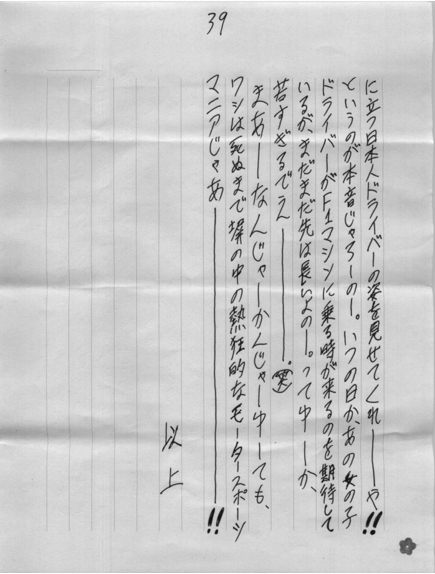 39
に立つ日本人ドライバーの姿を見せてくれ――や!!
というのが本音じゃろーのー。いつの日か、あの女の子
ドライバーがF1マシンに乗る時が来るのを期待して
いるが、まだまだ先は長いよのー。ってゆーか、
若すぎるでえ――――。(笑)
まあーなんじゃーかんじゃーゆーても、
ワシは死ぬまで塀の中の熱狂的なモータースポーツ
マニアじゃあ――――――――!!
以上